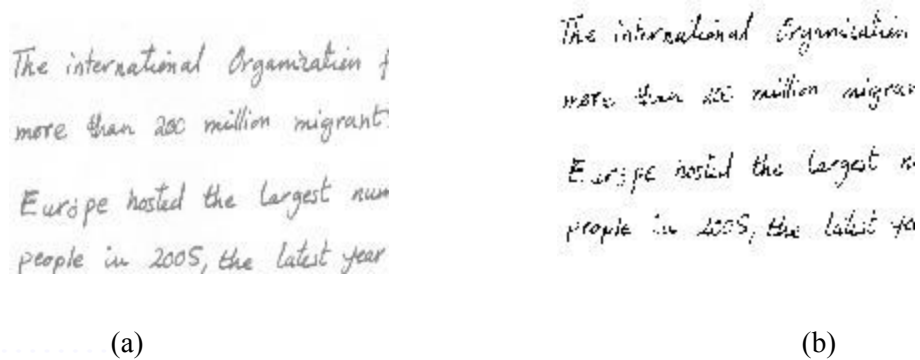 The international Organization f
more than 200 million migrant
Europe hosted the largest num
people in 2005, the latest year
(a)
The international Organization
more than 200 million migran
Europe hosted the largest n
people in 2005, the latest ye
(b)